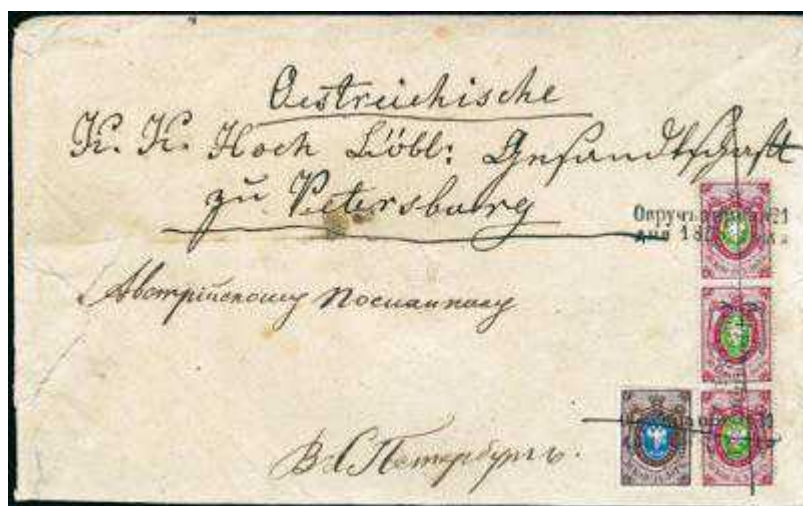 Oestreichische
K. K. Hoch Löbl: Gesandtschaft
zu Petersburg
Овручъ
дня 18
Австрійскому Посланнику
В. С. Петербургъ.